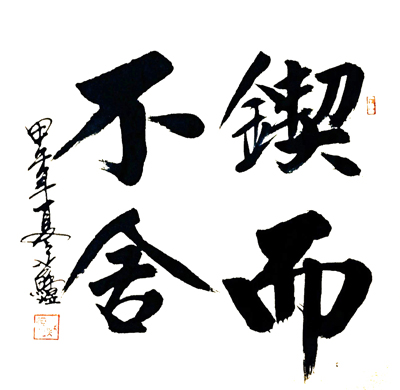 鍥而
不舍
甲午年夏